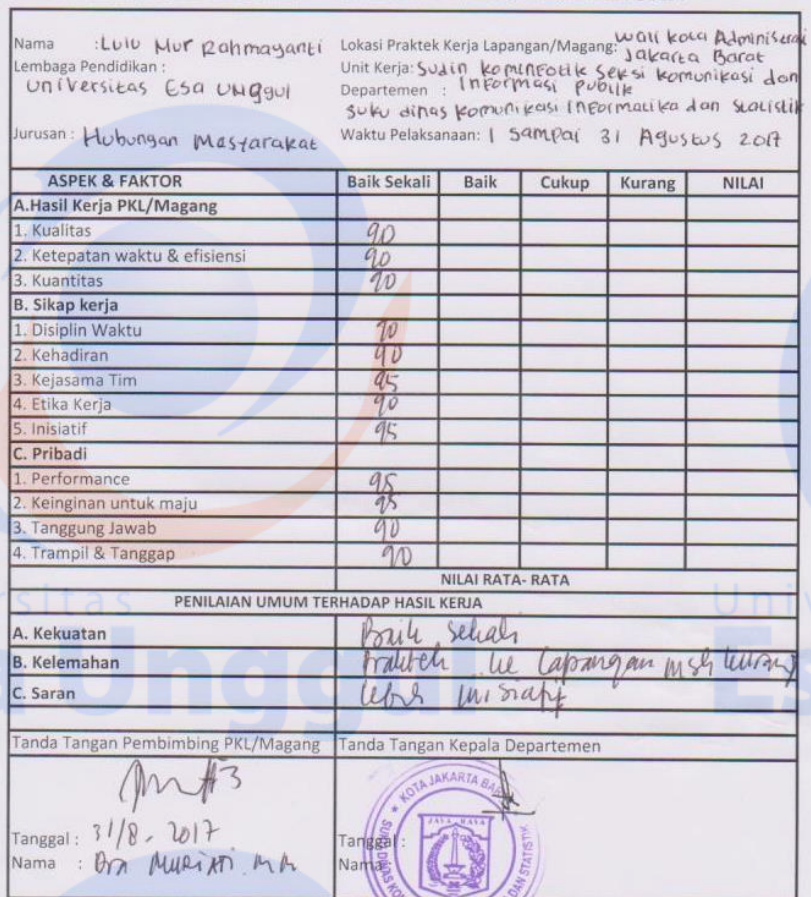 Nama :Lulu Nur Rahmayanti
Lembaga Pendidikan :
Universitas Esa Unggul
Jurusan : Hubungan Mastarakat
Lokasi Praktek Kerja Lapangan/Magang: Wali Kota Administrasi
Jakarta Barat
Unit Kerja: Sudin Kominfotik Seksi Komunikasi dan
Departemen : Informasi Publik
Suku dinas Komunikasi Informatika dan Statistik
Waktu Pelaksanaan: 1 Sampai 31 Agustus 2017
ASPEK & FAKTOR Baik Sekali Baik Cukup Kurang NILAI
A.Hasil Kerja PKL/Magang
1. Kualitas 90
2. Ketepatan waktu & efisiensi 90
3. Kuantitas 90
B. Sikap kerja
1. Disiplin Waktu 90
2. Kehadiran 90
3. Kejasama Tim 95
4. Etika Kerja 90
5. Inisiatif 95
C. Pribadi
1. Performance 95
2. Keinginan untuk maju 95
3. Tanggung Jawab 90
4. Trampil & Tanggap 90
NILAI RATA- RATA
PENILAIAN UMUM TERHADAP HASIL KERJA
A. Kekuatan Baik sekali
B. Kelemahan Praktek ke lapangan msh kurang
C. Saran lebih inisiatif
Tanda Tangan Pembimbing PKL/Magang Tanda Tangan Kepala Departemen
Tanggal : 31/8 - 2017
Nama : Dra Muriati. MM
Tanggal :
Nama
KOTA JAKARTA BAR
JAYA RAYA
SUKU DINAS KO
DAN STATISTIK
sitas
Unggul
Univ
Es